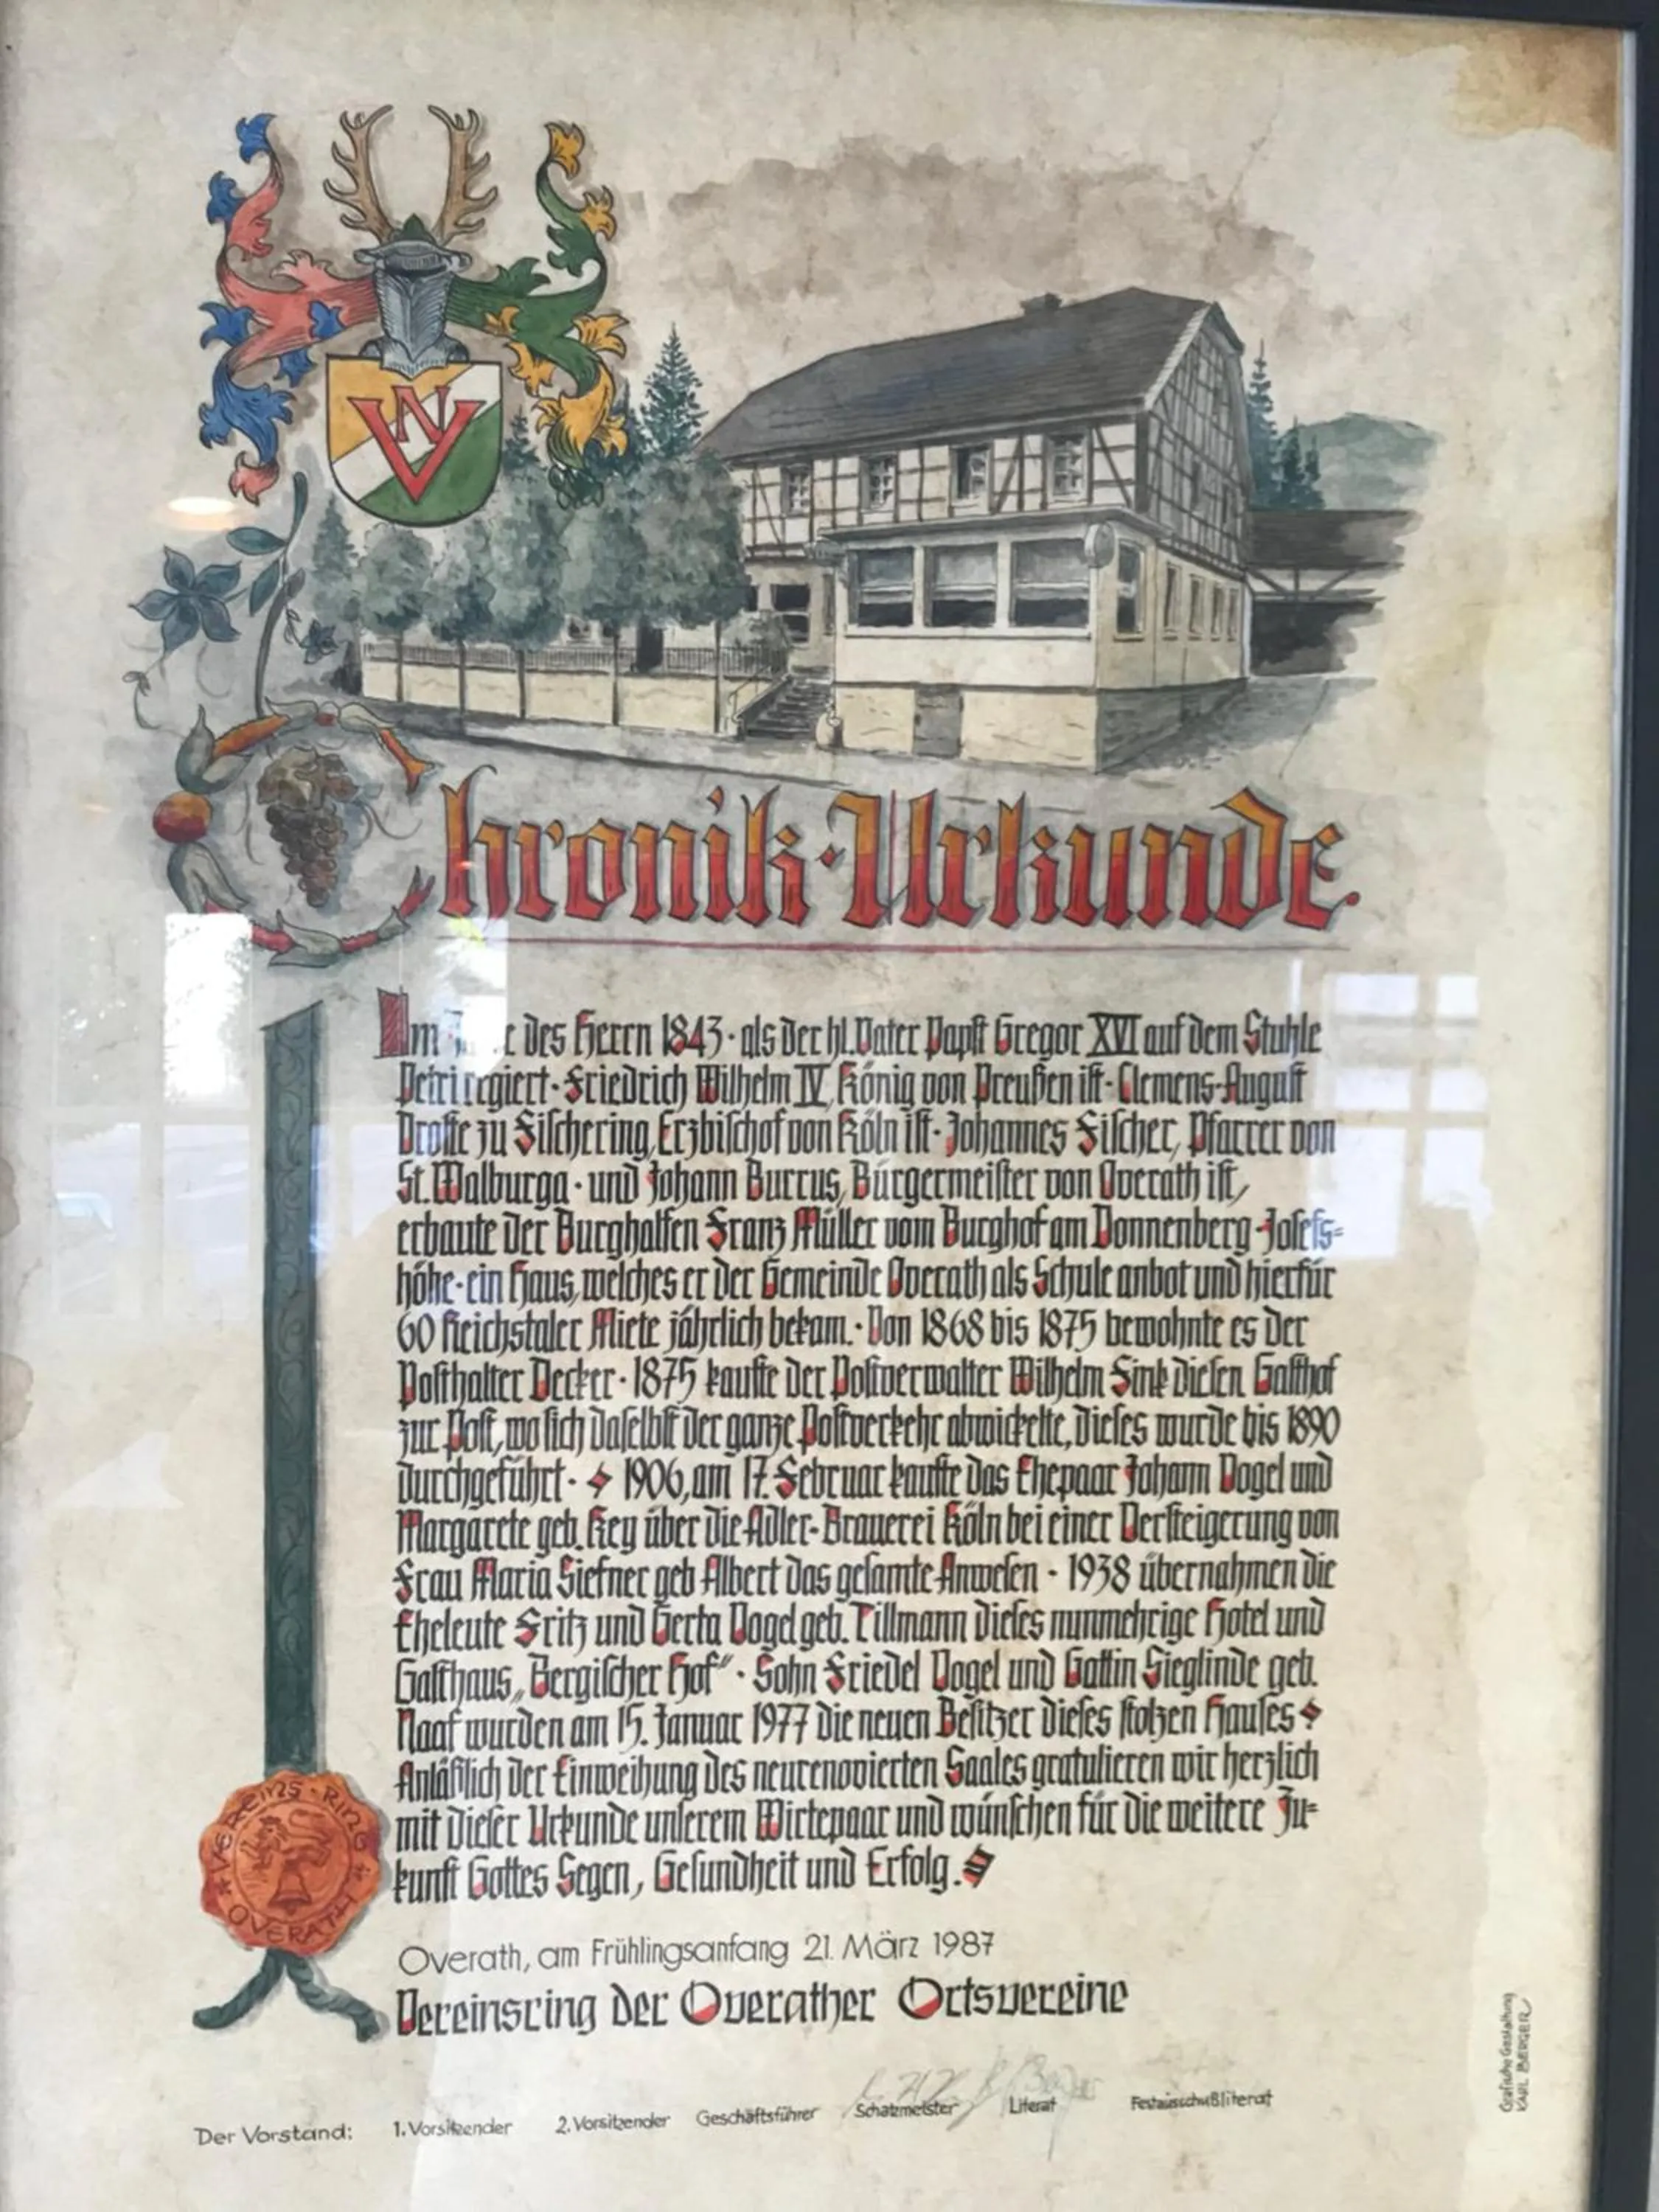 NV
Chronik-Urkunde.
Im des Herrn 1843 · als der hl. Vater Papst Gregor XVI auf dem Stuhle
Petri regiert · Friedrich Wilhelm IV, König von Preußen ist · Clemens-August
Droste zu Fischering, Erzbischof von Köln ist · Johannes Fischer, Pfarrer von
St. Walburga · und Johann Burrus, Bürgermeister von Overath ist,
erbaute der Burghalfen Franz Müller vom Burghof am Donnenberg - Josefs-
höhe · ein Haus, welches er der Gemeinde Overath als Schule anbot und hierfür
60 Reichstaler Miete jährlich bekam. · Von 1868 bis 1875 bewohnte es der
Posthalter Decker · 1875 kaufte der Postverwalter Wilhelm Fink diesen Gasthof
zur Post, wo sich daselbst der ganze Postverkehr abwickelte, dieses wurde bis 1890
durchgeführt · 1906, am 17. Februar kaufte das Ehepaar Johann Vogel und
Margarete geb. Key über die Adler-Brauerei Köln bei einer Versteigerung von
Frau Maria Siefner geb Albert das gesamte Anwesen - 1938 übernahmen die
Eheleute Fritz und Gerta Vogel geb. Tillmann dieses nunmehrige Hotel und
Gasthaus „Bergischer Hof" · Sohn Friedel Vogel und Gattin Sieglinde geb.
Naaf wurden am 15. Januar 1977 die neuen Besitzer dieses stolzen Hauses
Anläßlich der Einweihung des neurenovierten Saales gratulieren wir herzlich
mit dieser Urkunde unserem Wirtepaar und wünschen für die weitere Zu-
kunft Gottes Segen, Gesundheit und Erfolg.
VEREINS·RING
OVERATH
Overath, am Frühlingsanfang 21. März 1987
Vereinsring der Overather Ortsvereine
Der Vorstand: 1. Vorsitzender 2. Vorsitzender Geschäftsführer Schatzmeister Literat Festausschußliterat
Grafische Gestaltung
KARL BERGER